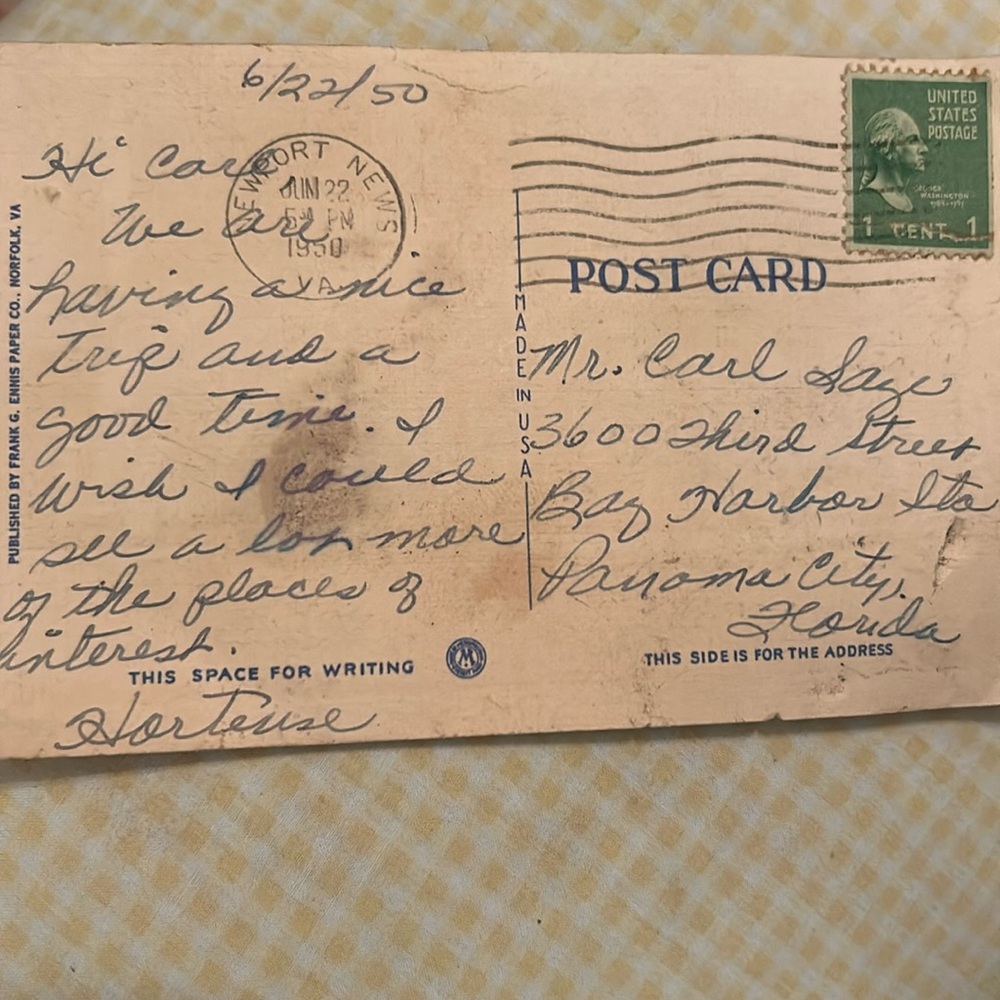 6/22/50
Hi Carl
We are
having a nice
trip and a
good time. I
wish I could
see a lot more
of the places of
interest.
THIS SPACE FOR WRITING
Hortense
PUBLISHED BY FRANK G. ENNIS PAPER CO., NORFOLK, VA
NEWPORT NEWS
JUN 22
PM
1950
VA
UNITED
STATES
POSTAGE
GEORGE
WASHINGTON
1 CENT 1
POST CARD
MADE IN USA
Mr. Carl
3600 Third Street
Bay Harbor Sta
Panama City,
Florida
THIS SIDE IS FOR THE ADDRESS